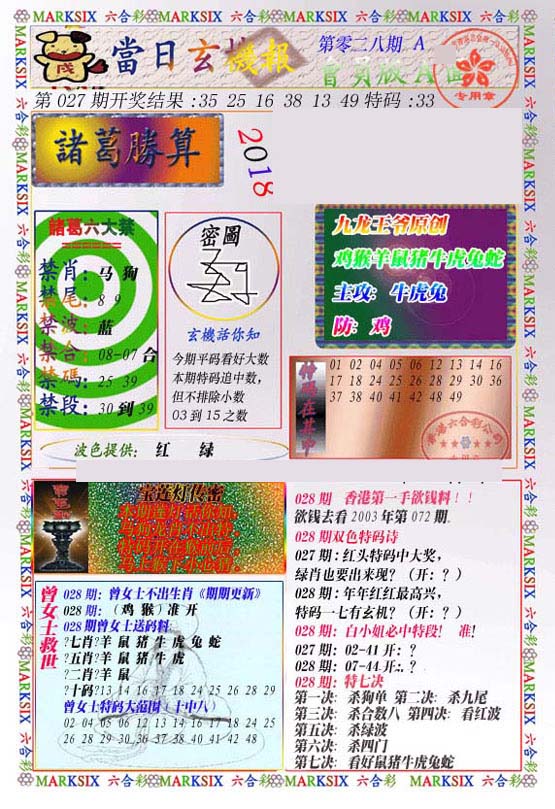 MARKSIX 六合彩 MARKSIX 六合彩 MARKSIX 六合彩 MARKSIX 六合彩
當日玄机
機报
第零二八期 A
會員版A面
专用章
第 027 期开奖结果 :35 25 16 38 13 49 特码 :33
諸葛勝算
2018
諸葛六大禁
禁肖：马 狗
禁尾：8 9
禁波：蓝
禁合：08-07 合
禁碼：25 39
禁段：30 到 39
密圖
玄機話你知
今期平码看好大数
本期特码追中数，
但不排除小数
03 到 15 之数
九龙王爷原创
鸡猴羊鼠猪牛虎兔蛇
主攻：牛虎兔
防：鸡
特码在其中
01 02 04 05 06 12 13 14 16
17 18 24 25 26 28 29 30 36
37 38 40 41 42 48 49
香港六合彩公司
波色提供： 红 绿
宝莲灯传密
028 期 香港第一手欲钱料！！
欲钱去看 2003 年第 072 期.
028 期双色特码诗
027 期：红头特码中大奖，
绿肖也要出来现？（开：？）
028 期：年年红红最高兴，
特码一七有玄机？（开：？）
028 期：白小姐必中特段！ 准!
027 期：02-41 开：？
028 期：07-44 开：.？
028 期：特七决
第一决：杀狗单 第二决：杀九尾
第三决：杀合数八 第四决：看红波
第五决：杀绿波
第六决：杀四门
第七决：看好鼠猪牛虎兔蛇
曾女士救世
028 期：曾女士不出生肖《期期更新》
028 期：（鸡 猴）准 开
028 期曾女士送码料：
?七肖?羊 鼠 猪 牛 虎 兔 蛇
?五肖?羊 鼠 猪 牛 虎
?二肖?羊 鼠
?十码?13 14 16 17 18 24 25 26 28 29
曾女士特码大范围（十中八）
02 04 05 06 12 13 16 17 18 24 25
26 28 29 30 36 37 38 40 41 42 48
MARKSIX 六合彩 MARKSIX 六合彩 MARKSIX 六合彩 MARKSIX 六合彩